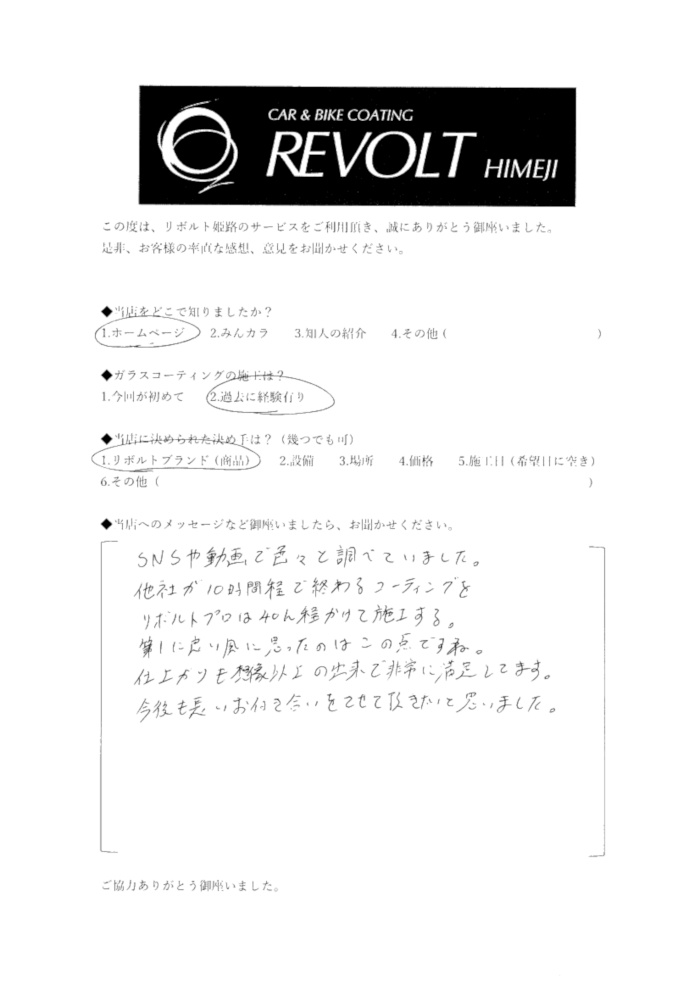 CAR & BIKE COATING
REVOLT HIMEJI
この度は、リボルト姫路のサービスをご利用頂き、誠にありがとう御座いました。
是非、お客様の率直な感想、意見をお聞かせください。
◆当店をどこで知りましたか？
1.ホームページ 2.みんカラ 3.知人の紹介 4.その他 ( )
◆ガラスコーティングの施工は？
1.今回が初めて 2.過去に経験有り
◆当店に決められた決め手は？（幾つでも可）
1.リボルトブランド（商品） 2.設備 3.場所 4.価格 5.施工日（希望日に空き）
6.その他（ ）
◆当店へのメッセージなど御座いましたら、お聞かせください。
SNSや動画で色々と調べていました。
他社が10時間程で終わるコーティングを
リボルトプロは40h程かけて施工する。
第1に良い風に思ったのはこの点ですね。
仕上がりも想像以上の出来で非常に満足してます。
今後も長いお付き合いをさせて頂きたいと思いました。
ご協力ありがとう御座いました。